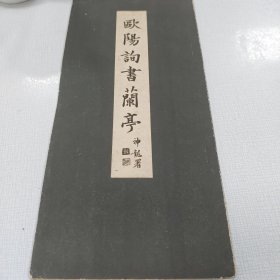 歐陽詢書蘭亭
神龍署